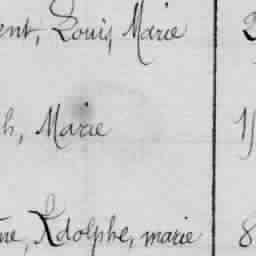 ent, Louis, Marie
h, Marie
ne, Adolphe, marie 8